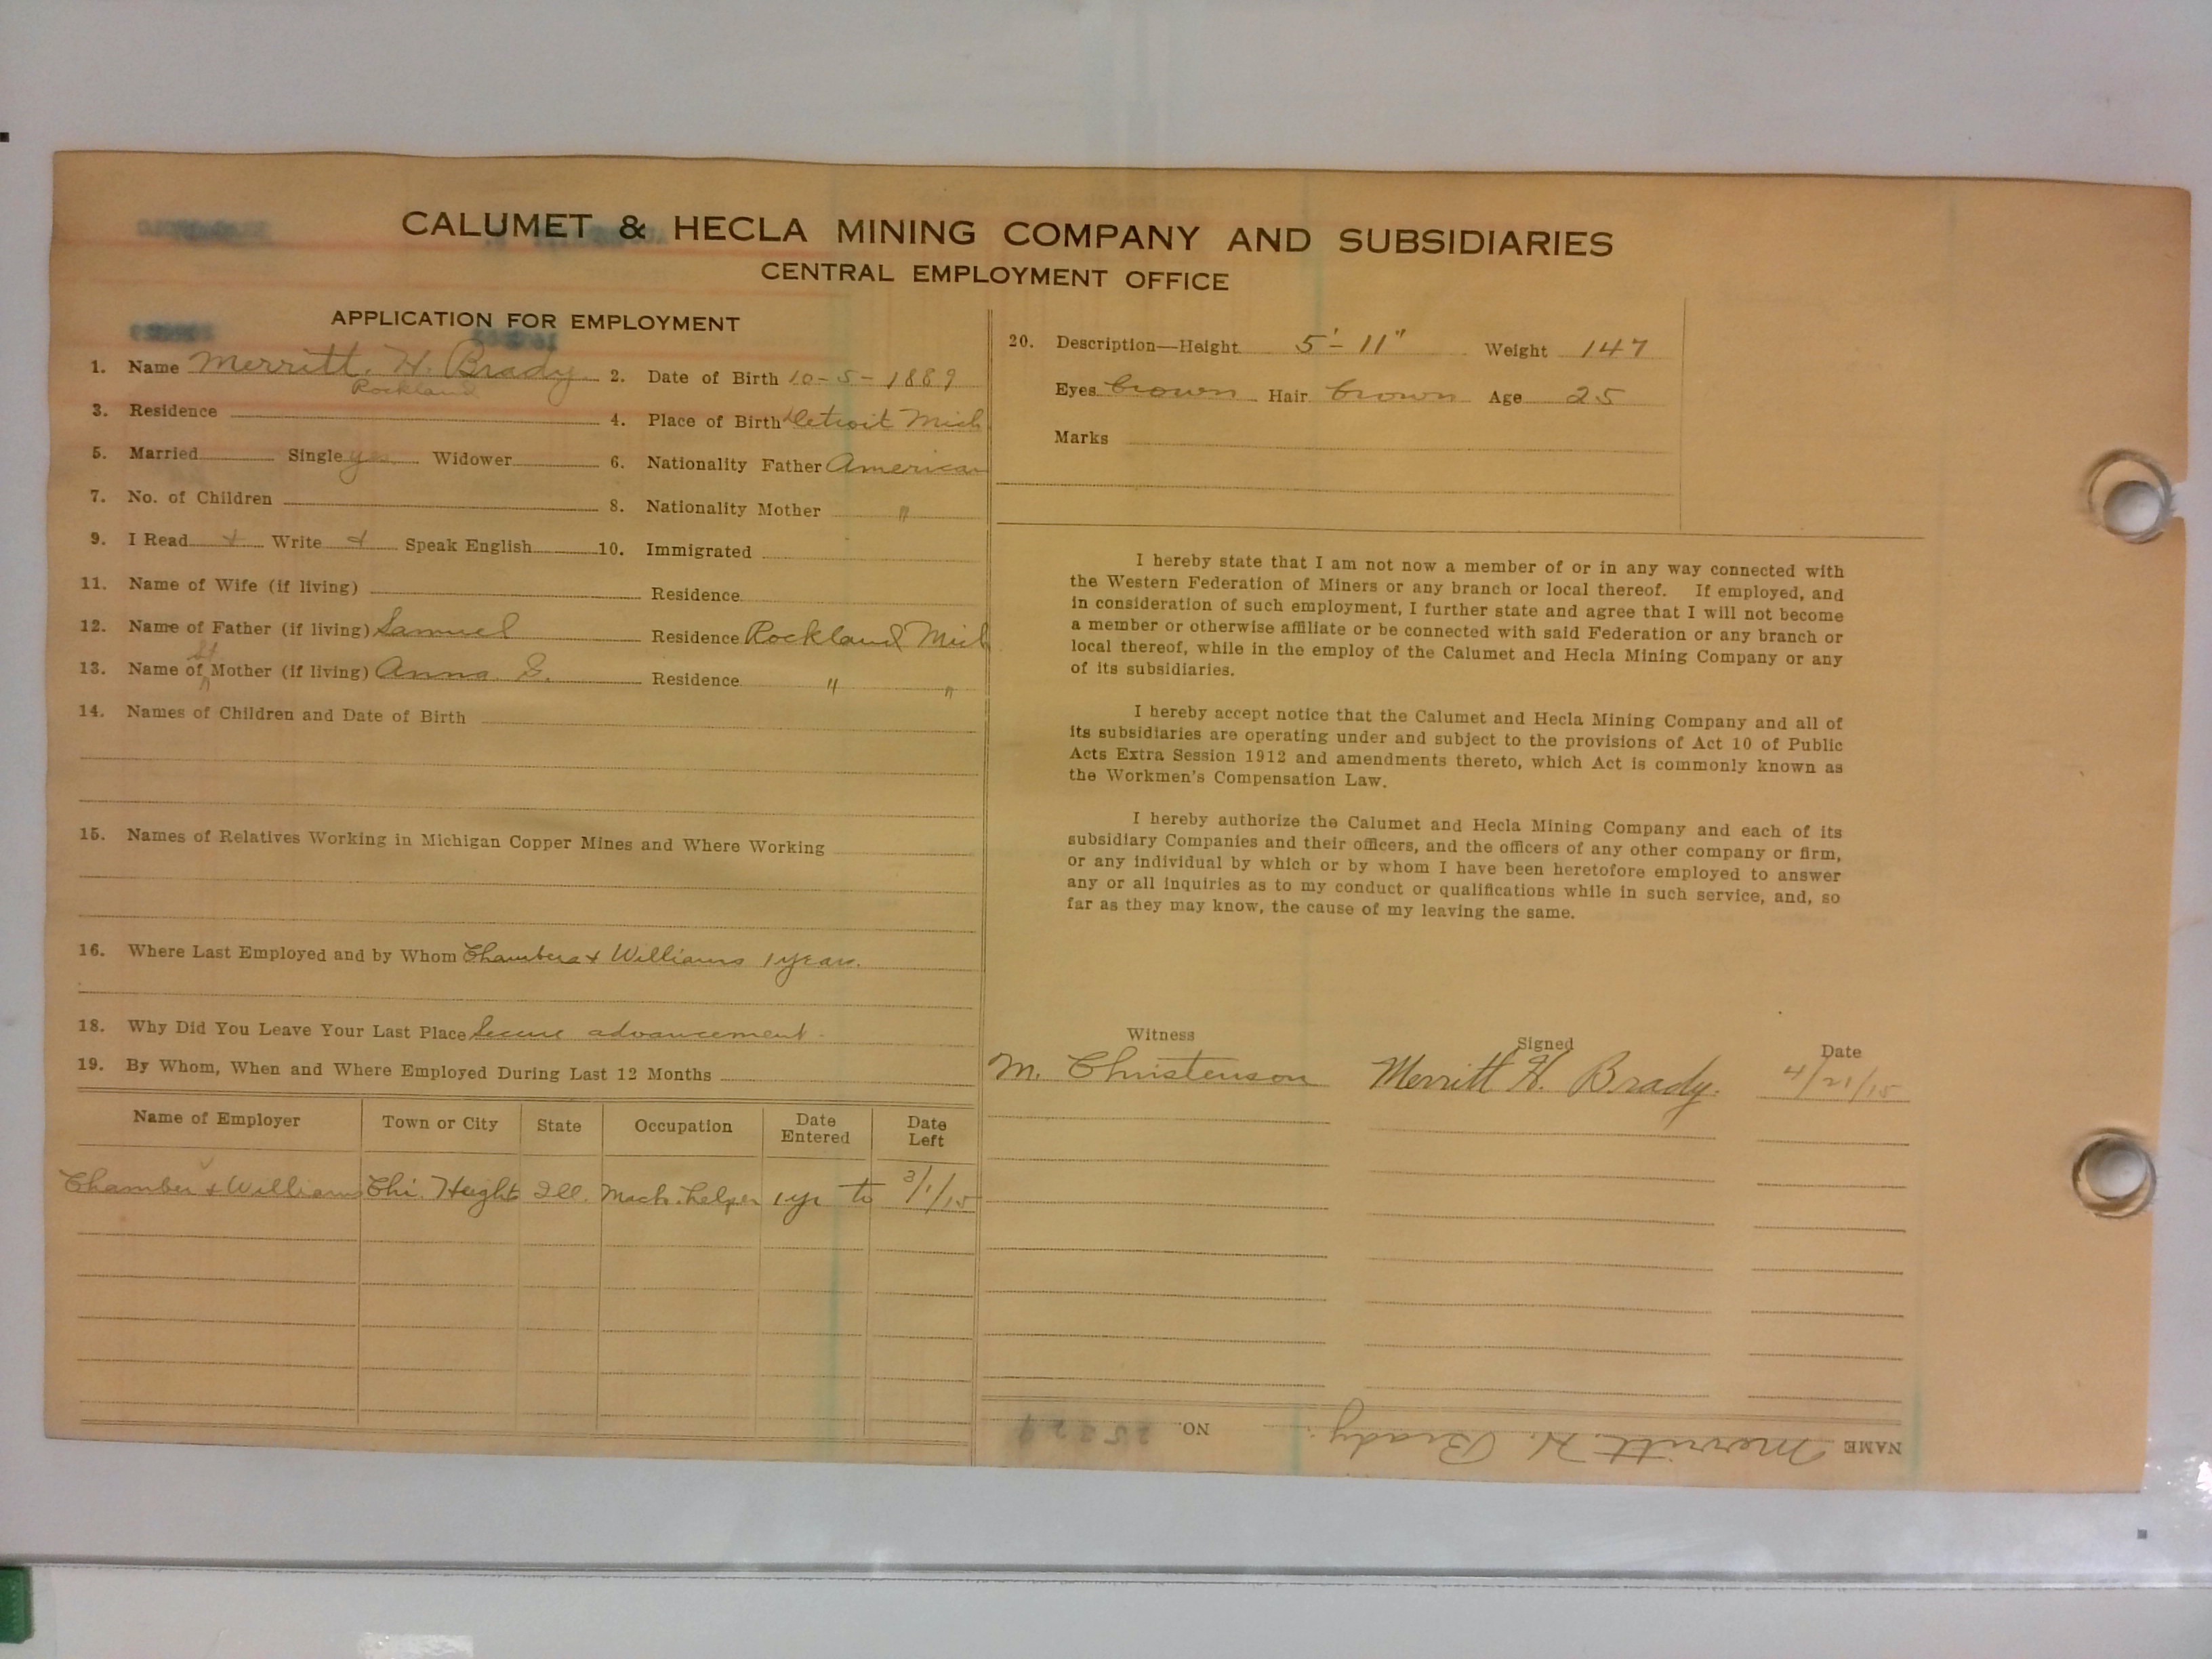 CALUMET & HECLA MINING COMPANY AND SUBSIDIARIES
CENTRAL EMPLOYMENT OFFICE
APPLICATION FOR EMPLOYMENT
1. Name Merritt. H. Brady 2. Date of Birth 10-5-1889
Rockland
3. Residence 4. Place of Birth Detroit Mich
5. Married Single yes Widower 6. Nationality Father American
7. No. of Children 8. Nationality Mother "
9. I Read + Write + Speak English 10. Immigrated
11. Name of Wife (if living) Residence
12. Name of Father (if living) Samuel Residence Rockland Mich
13. Name of St Mother (if living) Anna. S. Residence " "
14. Names of Children and Date of Birth
15. Names of Relatives Working in Michigan Copper Mines and Where Working
16. Where Last Employed and by Whom Chambers + Williams 1 year.
18. Why Did You Leave Your Last Place Secure advancement.
19. By Whom, When and Where Employed During Last 12 Months
Name of Employer Town or City State Occupation Date Entered Date Left
Chamber + Williams Chi. Height Ill. Mach. helper 1 yr to 3/1/15
20. Description—Height 5'-11" Weight 147
Eyes brown Hair brown Age 25
Marks
I hereby state that I am not now a member of or in any way connected with
the Western Federation of Miners or any branch or local thereof. If employed, and
in consideration of such employment, I further state and agree that I will not become
a member or otherwise affiliate or be connected with said Federation or any branch or
local thereof, while in the employ of the Calumet and Hecla Mining Company or any
of its subsidiaries.
I hereby accept notice that the Calumet and Hecla Mining Company and all of
its subsidiaries are operating under and subject to the provisions of Act 10 of Public
Acts Extra Session 1912 and amendments thereto, which Act is commonly known as
the Workmen's Compensation Law.
I hereby authorize the Calumet and Hecla Mining Company and each of its
subsidiary Companies and their officers, and the officers of any other company or firm,
or any individual by which or by whom I have been heretofore employed to answer
any or all inquiries as to my conduct or qualifications while in such service, and, so
far as they may know, the cause of my leaving the same.
Witness Signed Date
M. Christenson Merritt H. Brady. 4/21/15
NAME Merritt. H. Brady. NO.